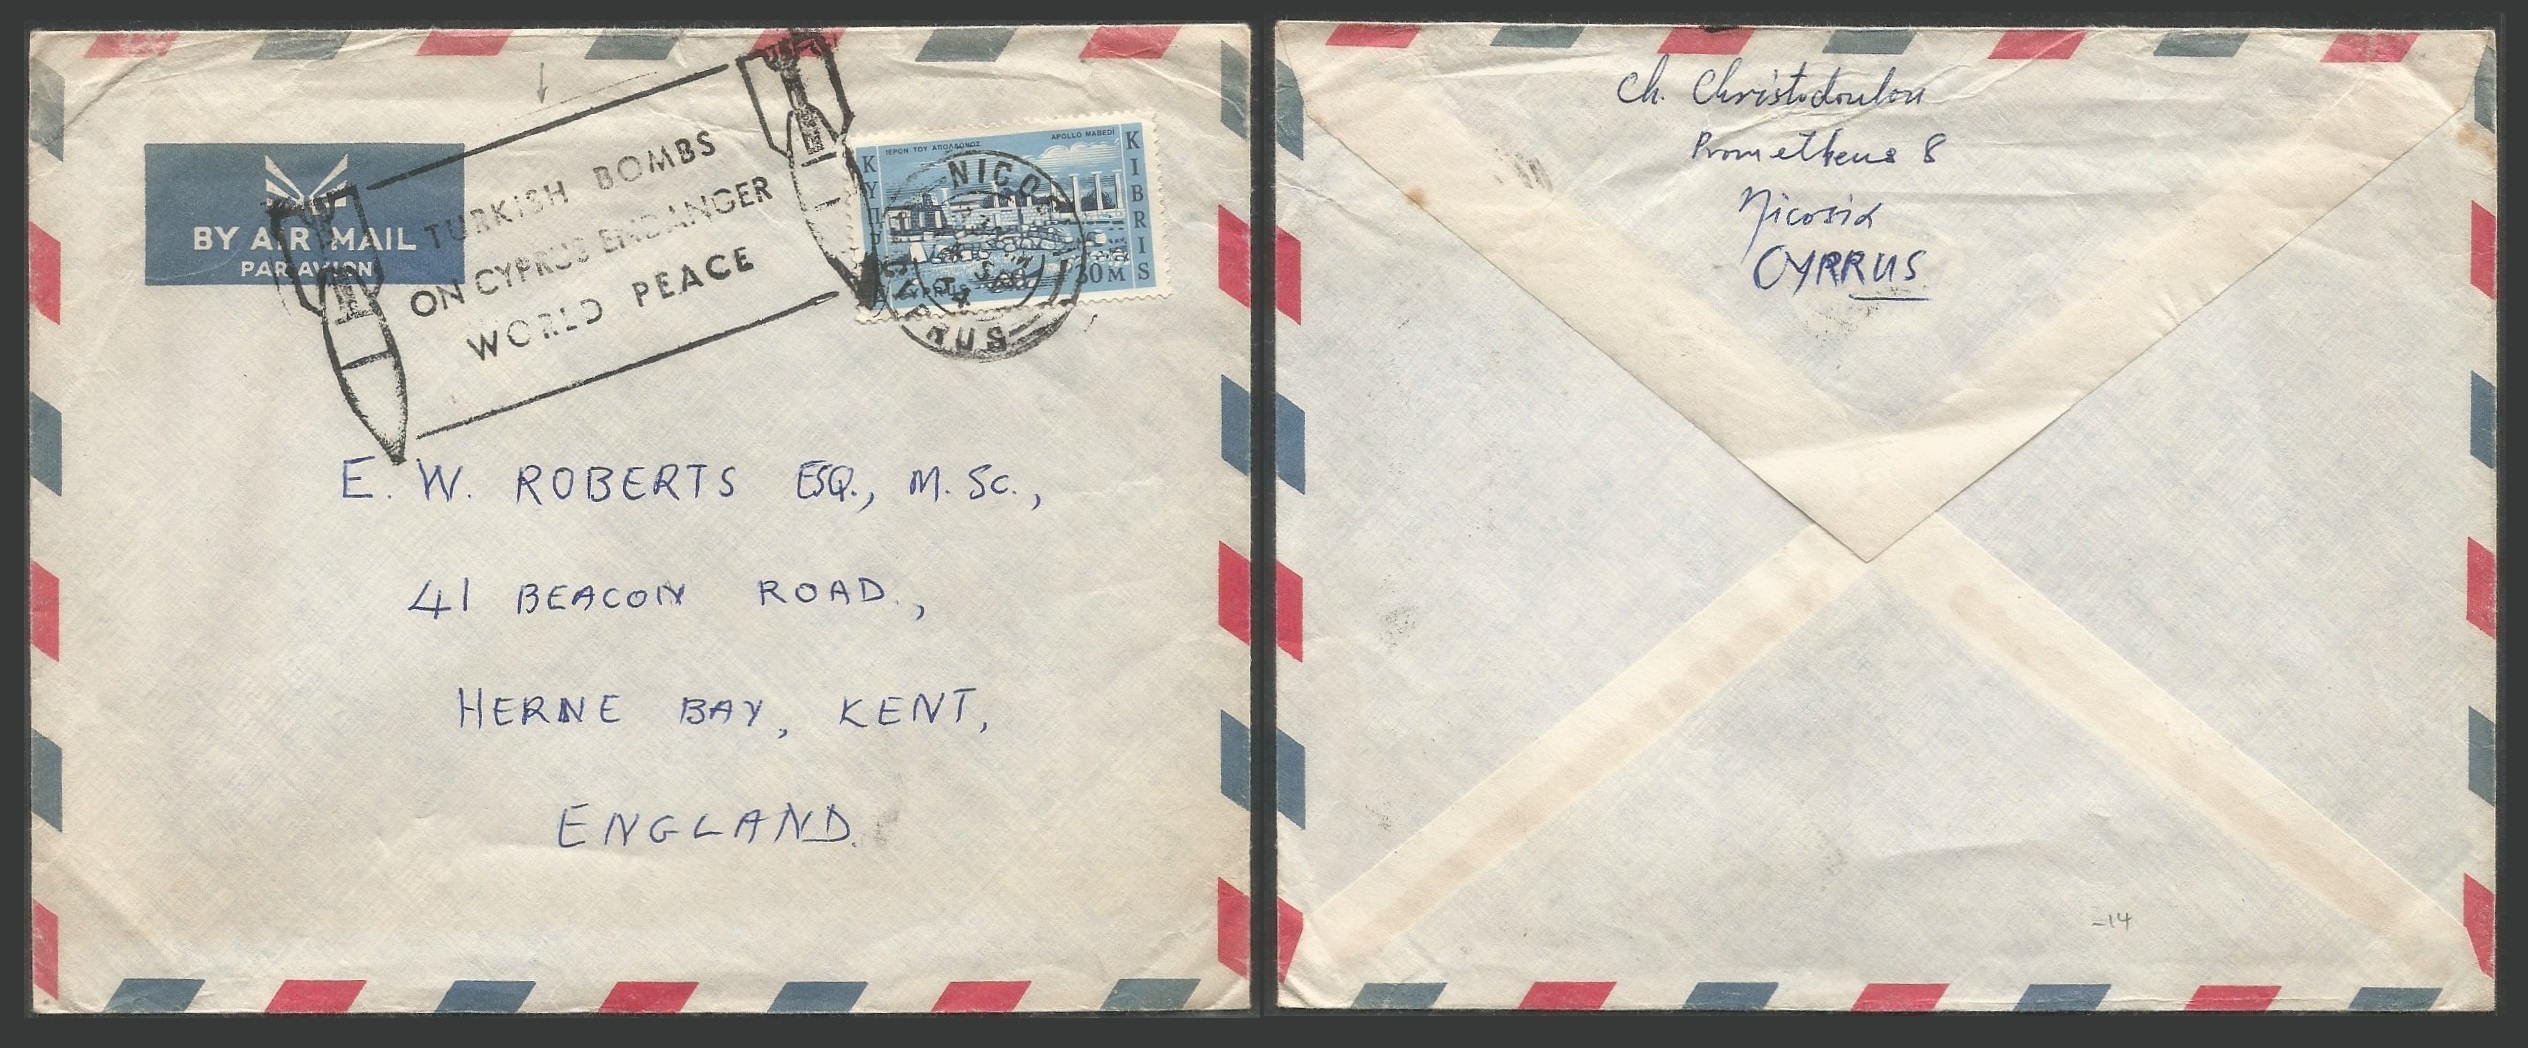 BY AIR MAIL
PAR AVION
TURKISH BOMBS
ON CYPRUS ENDANGER
WORLD PEACE
ΙΕΡΟΝ ΤΟΥ ΑΠΟΛΛΩΝΟΣ
APOLLO MABEDİ
KIBRIS
30 M
CYPRUS
E. W. ROBERTS ESQ., M. Sc.,
41 BEACON ROAD.,
HERNE BAY, KENT,
ENGLAND.
Ch. Christodoulou
Prometheus 8
Nicosia
CYPRUS
-14